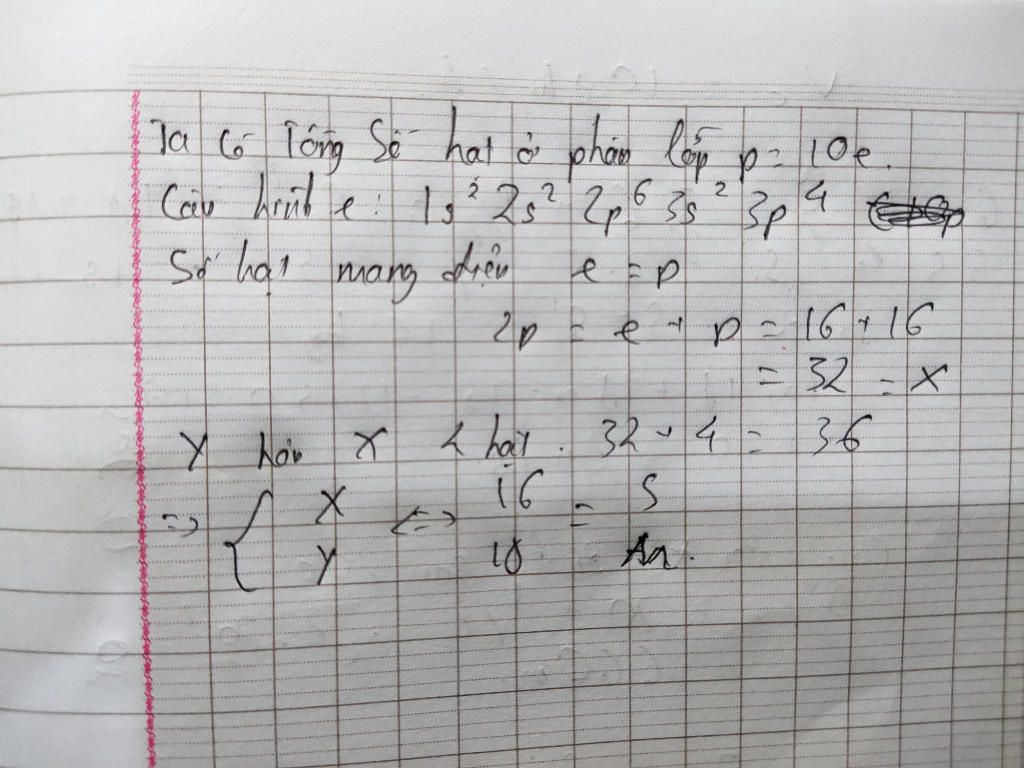 Ta có Tổng Số hạt ở phân lớp p = 10e.
Cấu hình e: 1s² 2s² 2p⁶ 3s² 3p⁴
Số hạt mang điện e = p
2p = e + p = 16 + 16
= 32 = X
Y hơn X 4 hạt. 32 + 4 = 36
=> { X <=> 16 = S
Y 18 Ar.